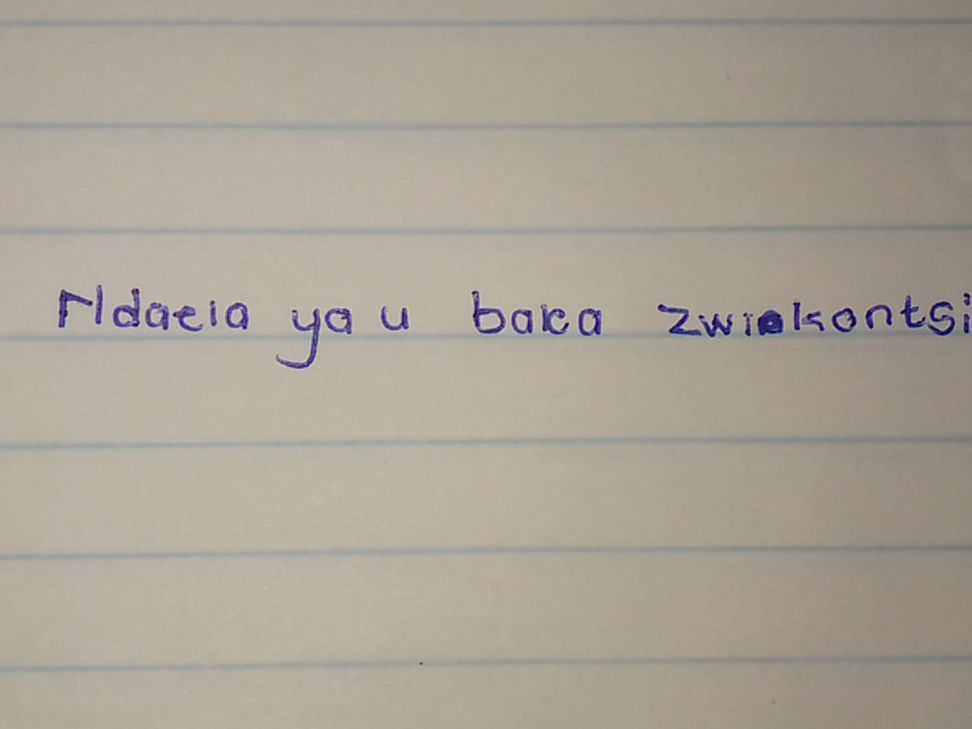 Ndaela ya u baka zwikontsi